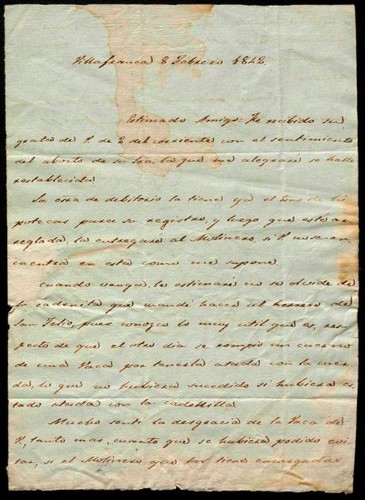 Villafranca 8 Febrero 1842
Estimado Amigo: He recibido su
grata de V. de 2 del corriente con el sentimiento
del aborto de su Sra. lo que me alegrare se halle
restablecida
La cosa de debitorio la tiene ya el de hi
potecas para su registro, y luego que este ar
reglada, la entregare al Molinero si V. no se en
cuentra en esta como me supone
Cuando venga, le estimare no se olvide de
la cadenita que mandé hacer al herrero de
San Felio, pues conozco lo muy util que es, res
pecto de que el otro dia se rompio un cuerno
de una Vaca por tenerla atada con la cuer
da, lo que no hubiera sucedido si hubiera es
tado atada con la cadenilla
Mucho senti la desgracia de la Vaca de
V. tanto mas, cuanto que se hubiera podido evi
tar, si el Molinero que las tiene encargadas